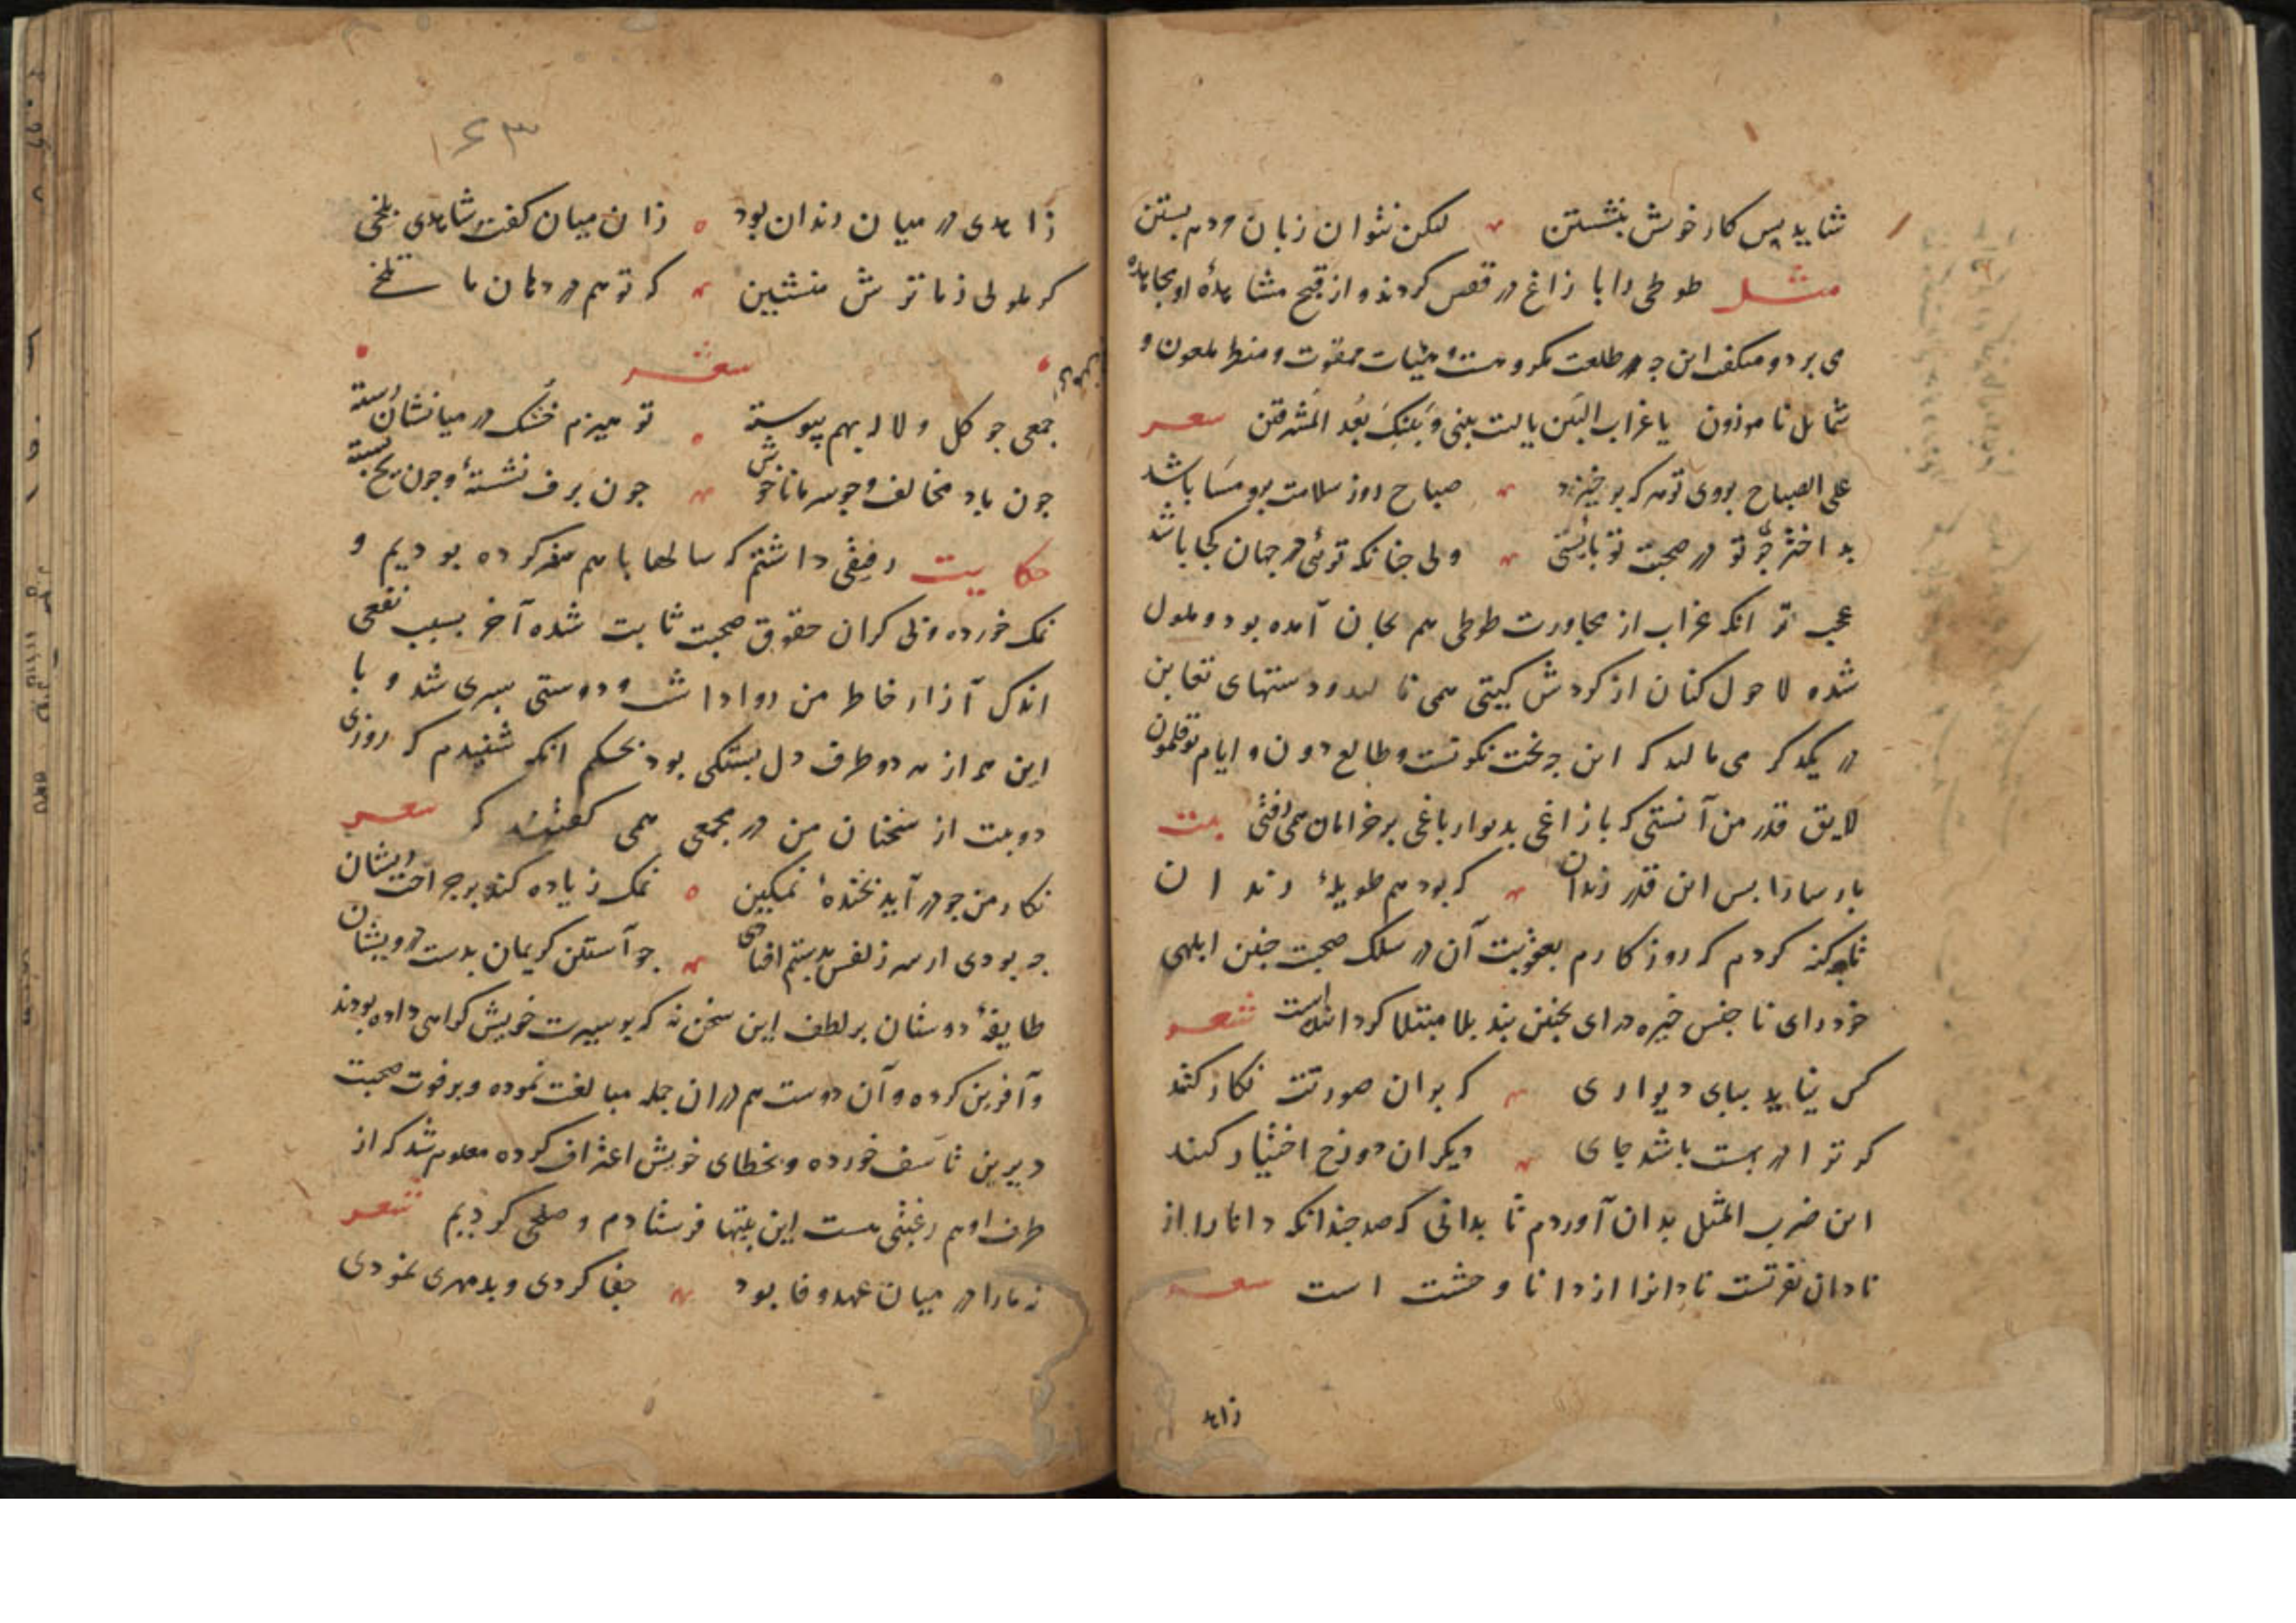 شاید پس کار خوش بنشستن لکن نتوان زبان مردم بستن
مثل طوطی را با زاغ در قفس کردند و از قبح مشاهدهٔ او مجاهده
می برد و میکفت این چه طلعت مکروهست و هیئات ممقوت و منظر ملعون و
شمایل ناموزون یا غراب البین یا لیت بینی و بینک بعد المشرقین شعر
علی الصباح بروی تو هر که برخیزد صباح روز سلامت برو مسا باشد
بد اختر چو تو در صحبت تو بایستی ولی چنانکه توئی در جهان کجا باشد
عجب تر انکه غراب از مجاورت طوطی هم بجان آمده بود و ملول
شده لا حول کنان از کردش کیتی همی نالید و دستهای تغابن
در یکدکر می مالید که این چه بخت نکونست و طالع دون و ایام بوقلمون
لایق قدر من آنستی که با زاغی بدیوار باغی بر خرامان همی رفتی بیت
پارسا را بس این قدر زندان که بود هم طویلهٔ رندان
تا چه کنه کردم که روزکارم بعقوبت آن در سلک صحبت چنین ابلهی
خود رای نا جنس خیره درای بچنین بند بلا مبتلا کردانیده است شعر
کس نیاید بپای دیواری که بران صورتت نکار کنند
کر ترا در بهشت باشد جای دیکران دوزخ اختیار کنند
این ضرب المثل بدان آوردم تا بدانی که صد چندانکه دانا را از
نادان نفرتست نادانرا از دانا وحشت است شعر
زاهد
۱۶۳
زاهدی در میان رندان بود زان میان کفت شاهدی بلخی
کر ملولی ز ما ترش منشین که تو هم در دهان ما تلخی
شعر
جمعی چو کل و لاله بهم پیوسته تو هیزم خشک در میانشان رسته
چون باد مخالف و چو سرما ناخوش چون برف نشستهٔ و چون یخ بسته
حکایت رفیقی داشتم که سالها با هم سفر کرده بودیم و
نمک خورده و بی کران حقوق صحبت ثابت شده آخر بسبب نفعی
اندک آزار خاطر من روا داشت و دوستی سپری شد و با
این همه از هر دو طرف دل بستکی بود بحکم انکه شنیدم که روزی
دو بیت از سخنان من در مجمعی همی کفتند که شعر
نکار من چو در آید بخندهٔ نمکین نمک زیاده کند بر جراحت ریشان
چه بودی ار سر زلفش بدستم افتادی چو آستین کریمان بدست درویشان
طایفهٔ دوستان بر لطف این سخن نه که بر سیرت خویش کواهی داده بودند
و آفرین کرده و آن دوست هم دران جمله مبالغت نموده و بر فوت صحبت
دیرین تاسف خورده و بخطای خویش اعتراف کرده معلوم شد که از
طرف او هم رغبتی هست این بیتها فرستادم و صلح کردیم شعر
نه ما را در میان عهد و وفا بود جفا کردی و بدمهری نمودی